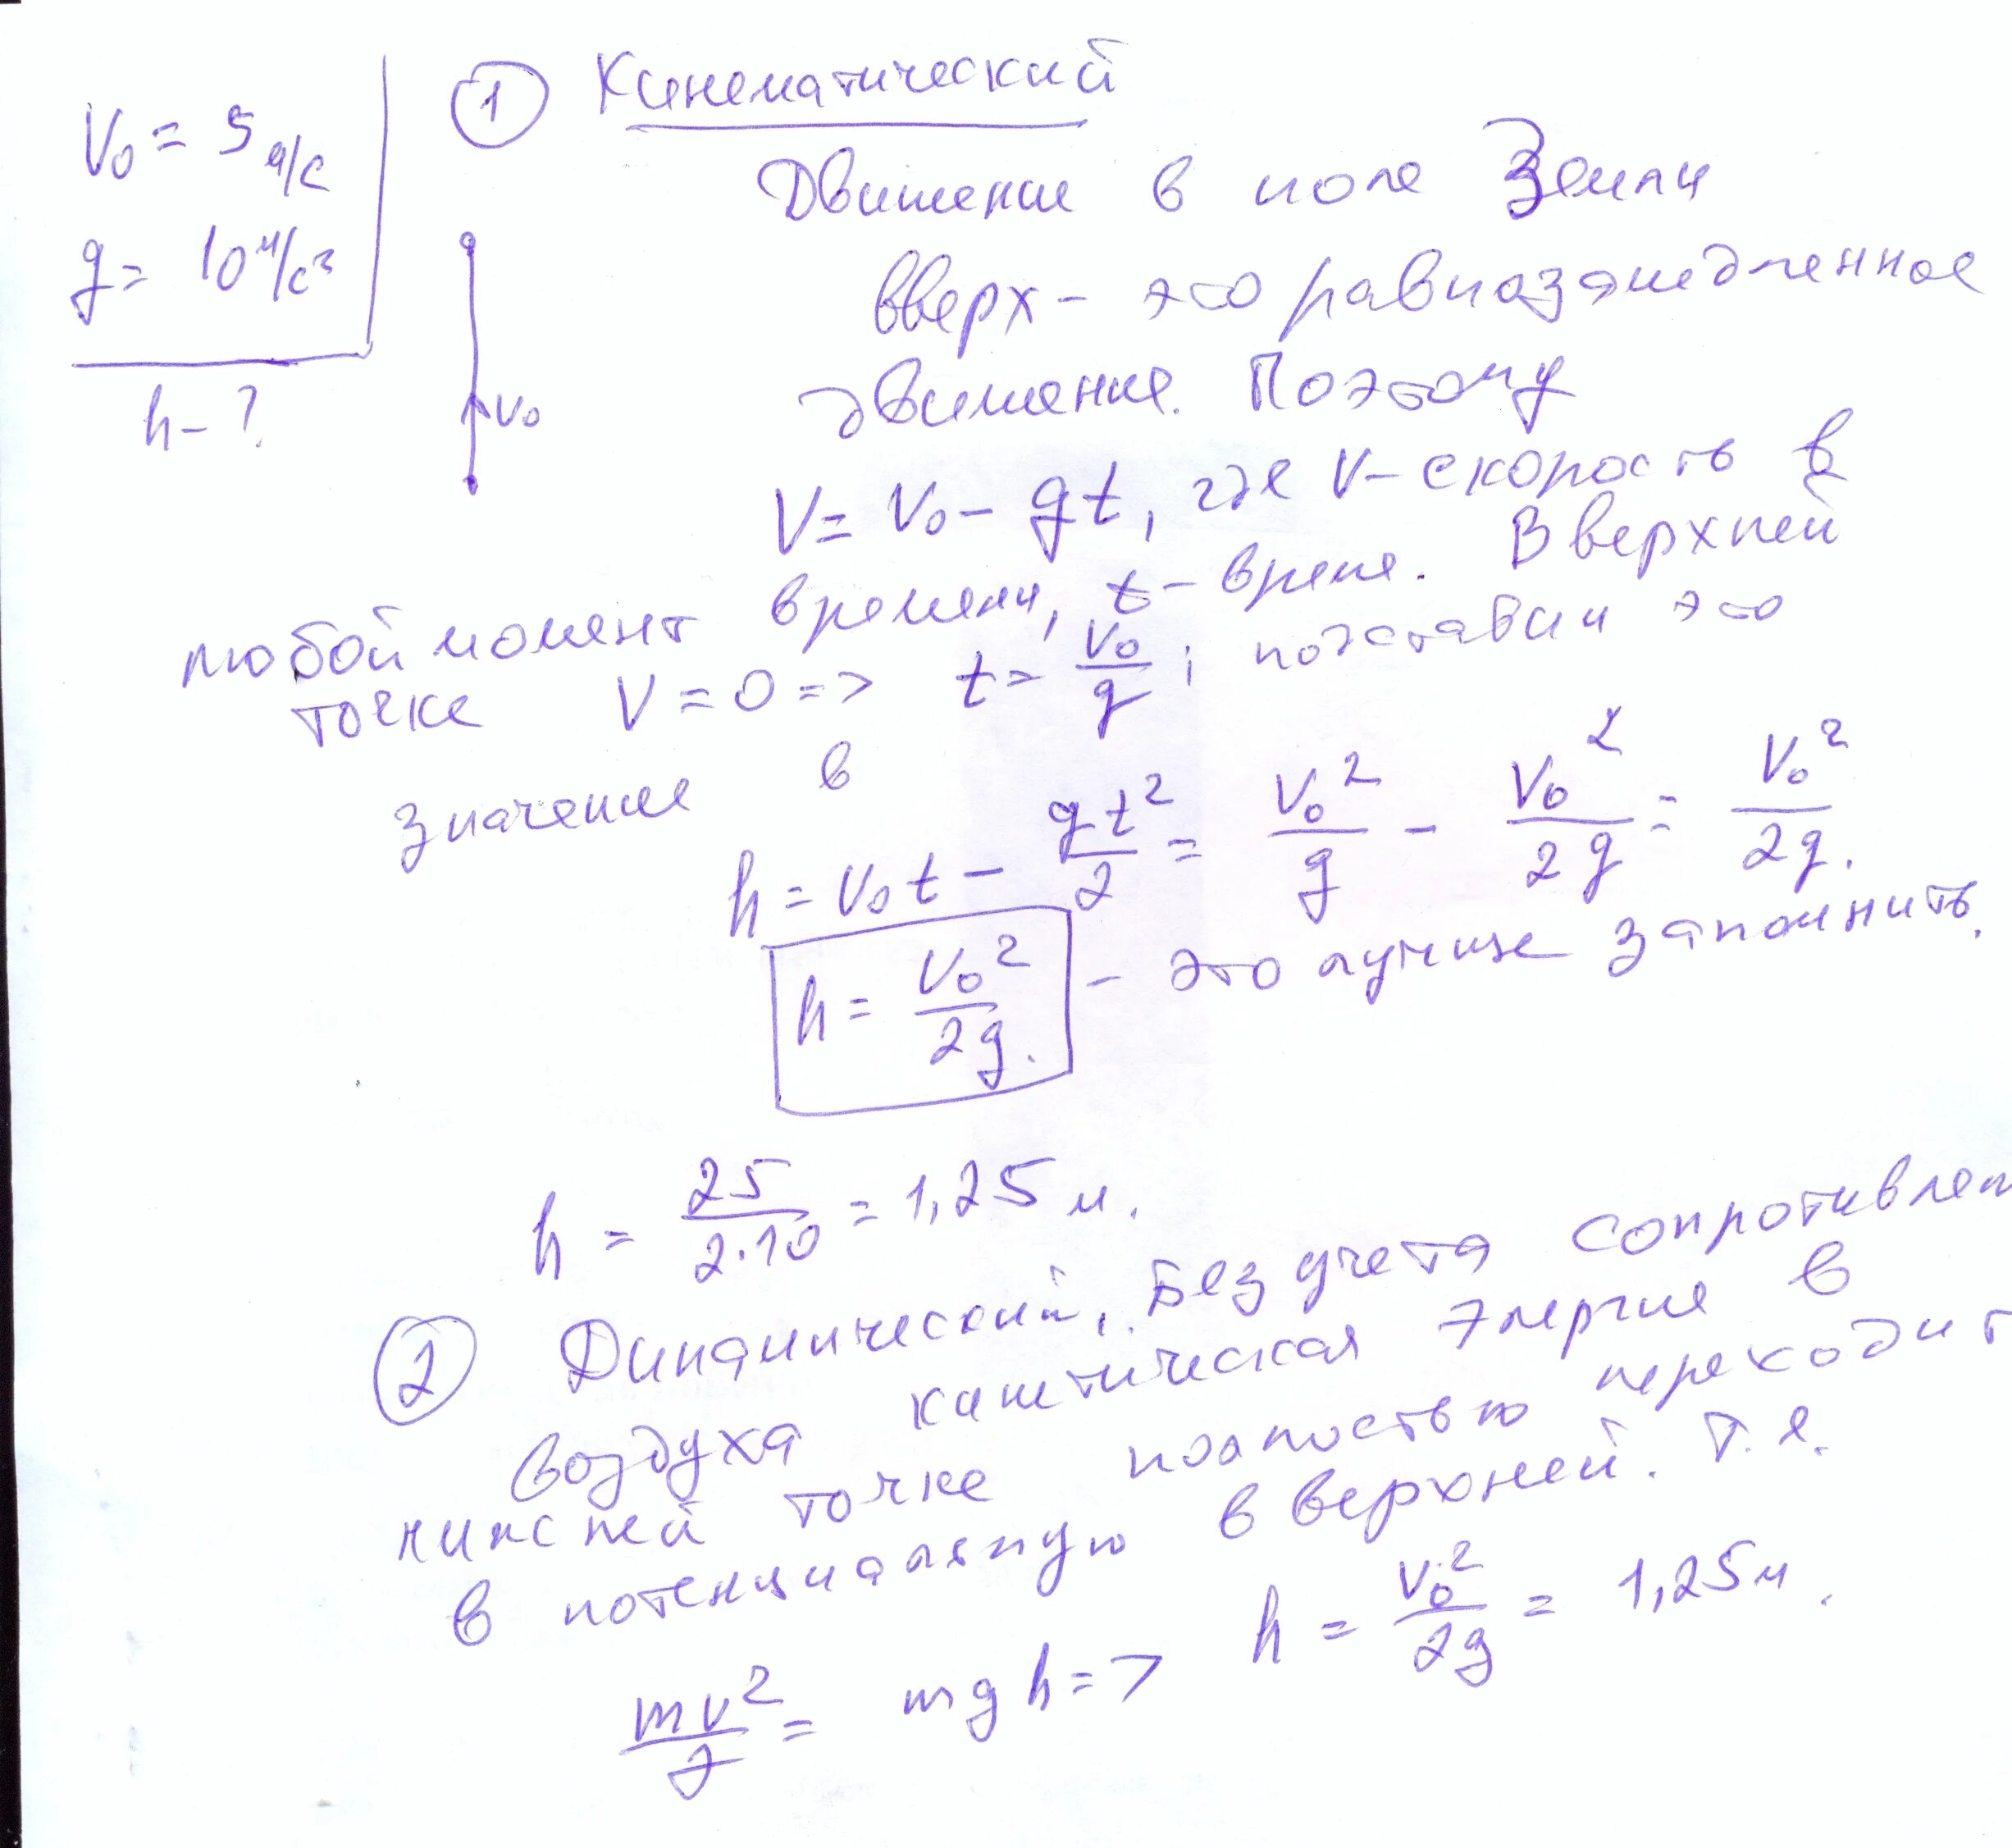 V₀ = 5 м/с
g = 10 м/с²
h - ?
V₀
① Кинематический
Движение в поле Земли
вверх - это равнозамедленное
движение. Поэтому
V = V₀ - gt, где V - скорость в
любой момент времени, t - время. В верхней
точке V = 0 => t = V₀/g; подставим это
значение в
h = V₀t - gt²/2 = V₀²/g - V₀²/2g = V₀²/2g.
h = V₀²/2g. - это лучше запомнить.
h = 25/2·10 = 1,25 м.
② Динамический. Без учета сопротивлен
воздуха кинетическая энергия в
нижней точке полностью переходит
в потенциальную в верхней. Т.е.
mv²/2 = mgh => h = V₀²/2g = 1,25 м.